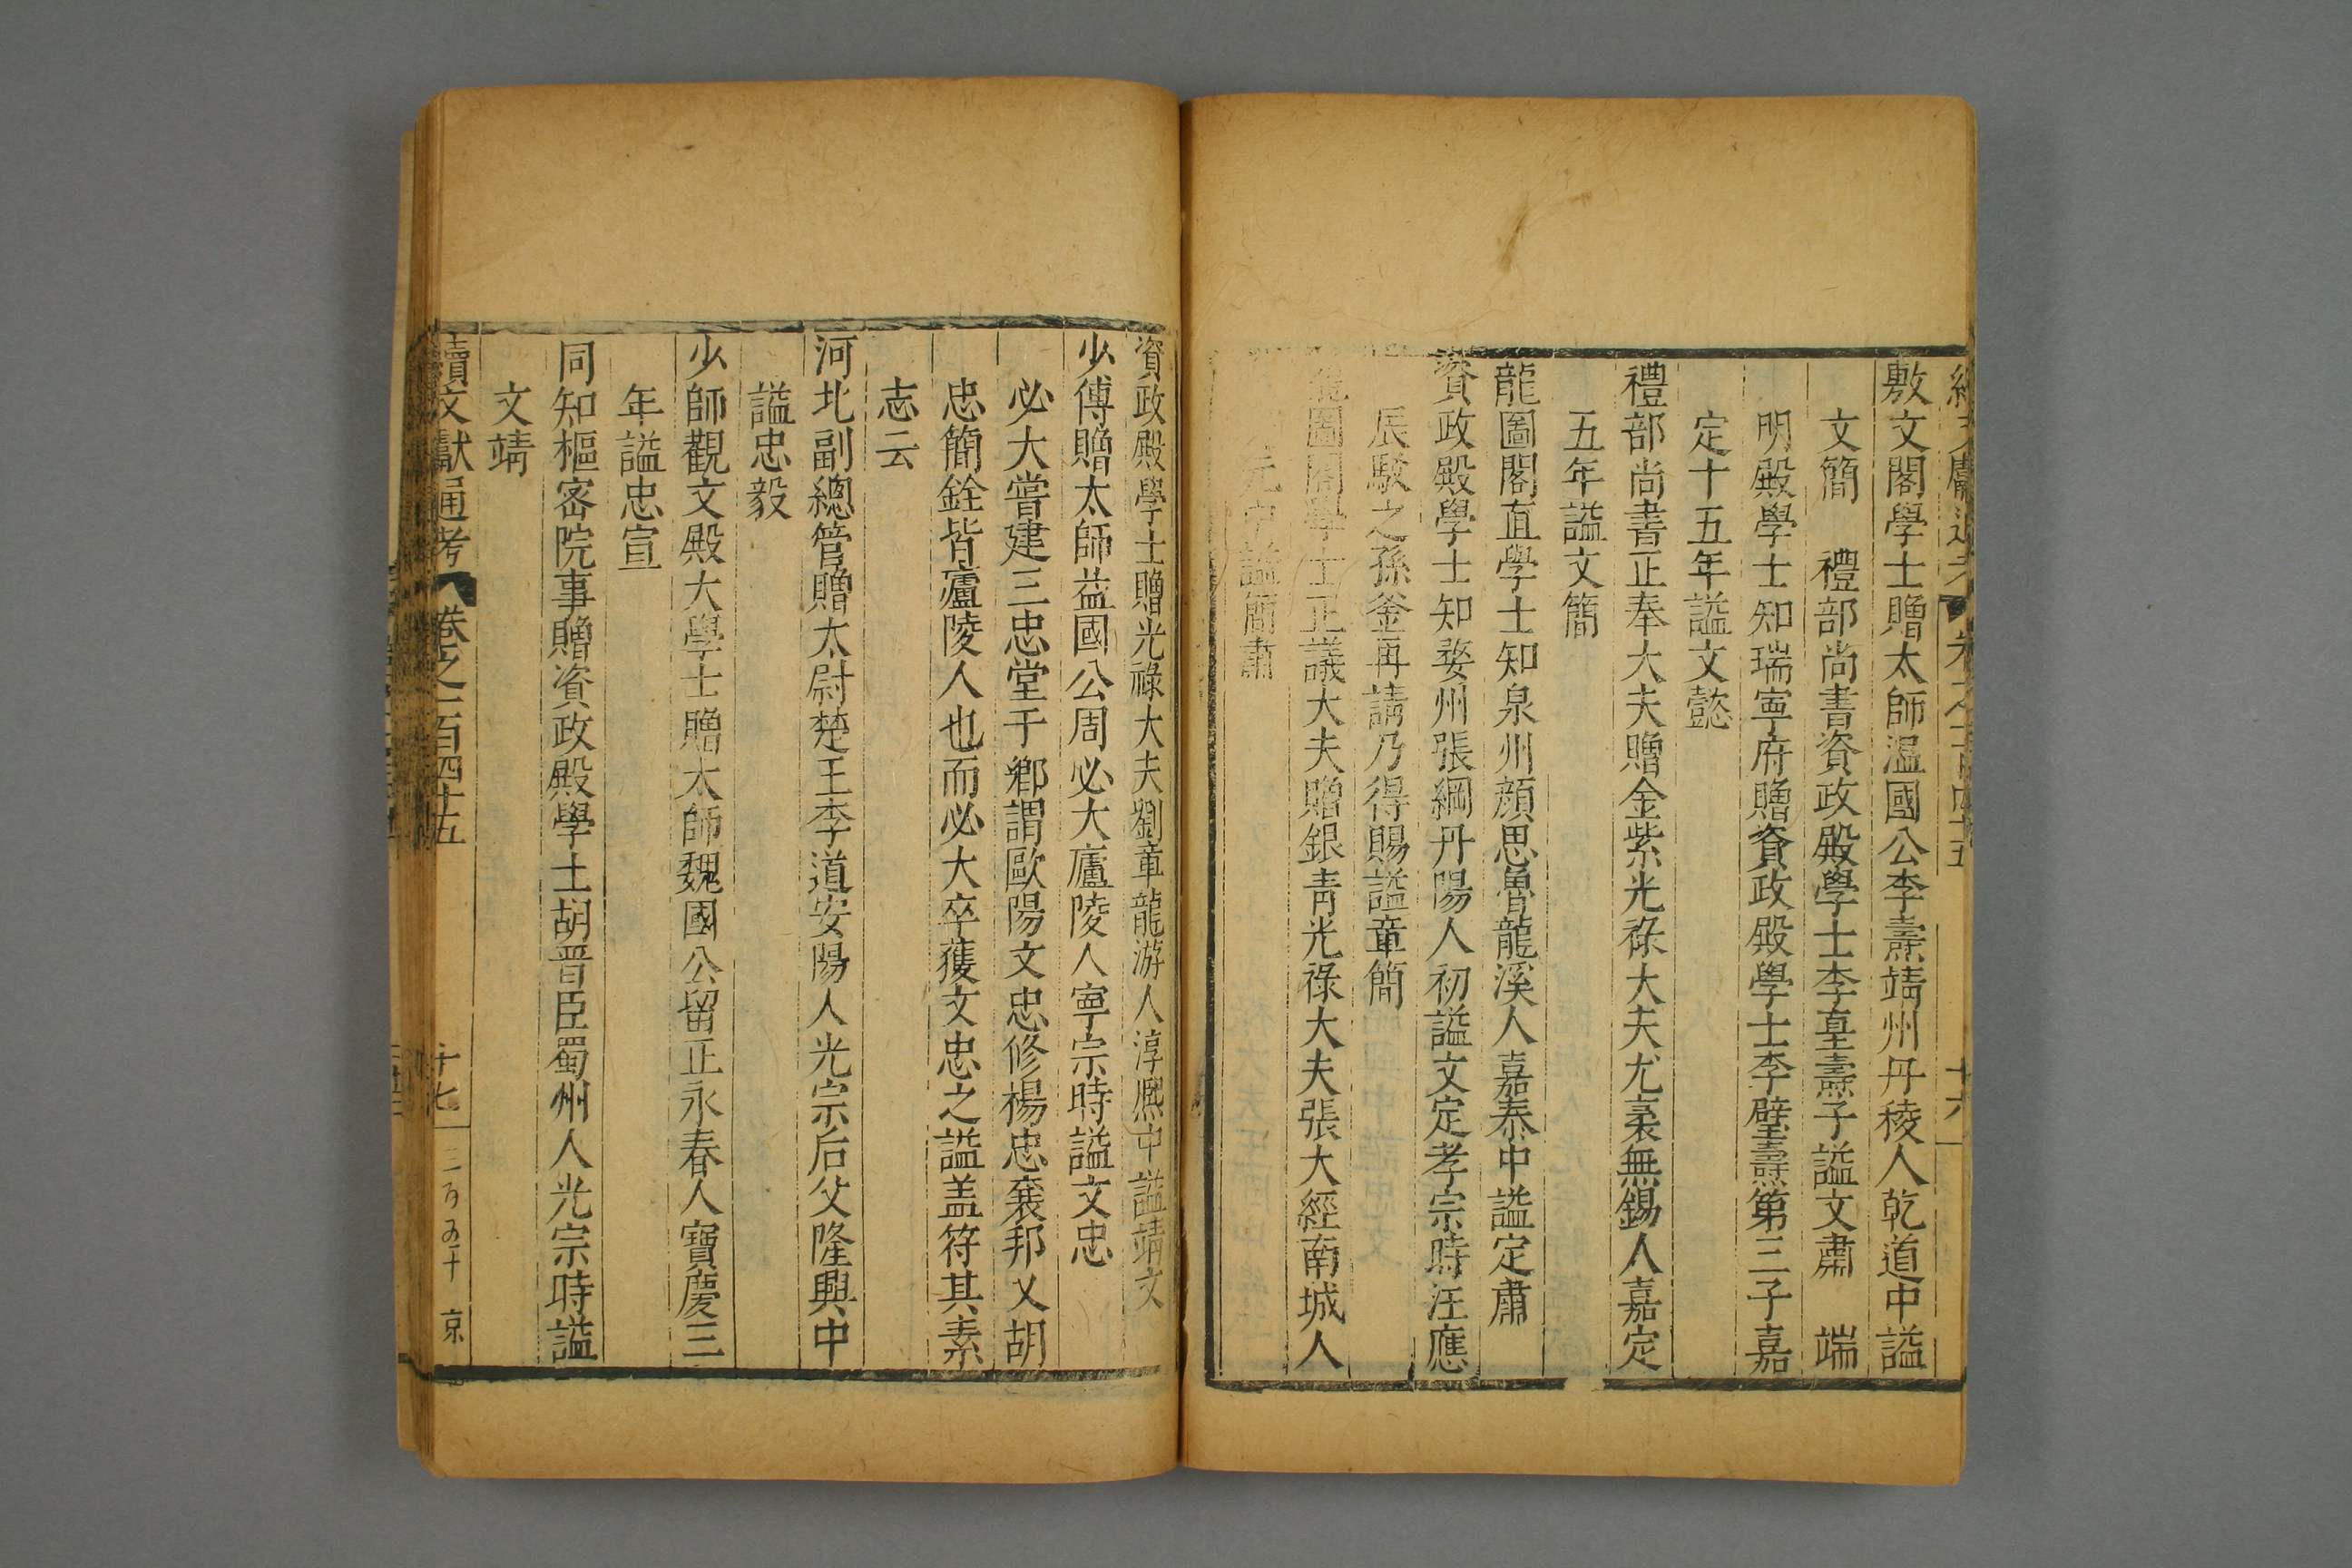 續文獻通考 卷之一百四十五 十六
敷文閣學士贈太師温國公李燾靖州丹稜人乾道中謚
文簡 禮部尚書資政殿學士李𡌴燾子謚文肅 端
明殿學士知瑞寧府贈資政殿學士李壁燾第三子嘉
定十五年謚文懿
禮部尚書正奉大夫贈金紫光祿大夫尤袤無錫人嘉定
五年謚文簡
龍圖閣直學士知泉州顔思魯龍溪人嘉泰中謚定肅
資政殿學士知婺州張綱丹陽人初謚文定孝宗時汪應
辰駁之孫釜再請乃得賜謚章簡
龍圖閣學士正議大夫贈銀青光祿大夫張大經南城人
元中謚簡肅
資政殿學士贈光祿大夫劉章龍游人淳熙中謚靖文
少傅贈太師益國公周必大廬陵人寧宗時謚文忠
必大嘗建三忠堂于鄉謂歐陽文忠修楊忠襄邦乂胡
忠簡銓皆廬陵人也而必大卒獲文忠之謚盖符其素
志云
河北副總管贈太尉楚王李道安陽人光宗后父隆興中
謚忠毅
少師觀文殿大學士贈太師魏國公留正永春人寶慶三
年謚忠宣
同知樞密院事贈資政殿學士胡晋臣蜀州人光宗時謚
文靖
續文獻通考 卷之一百四十五 十七 三百五十 京